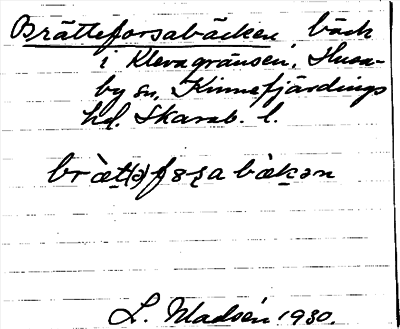 Brätteforsabäcken bäck
i Klevagränsen, Husa-
by sn, Kinnefjärdings
hd. Skarab. l.
bràt(ə)fɷʂa bàkən
L. Madsén 1930.